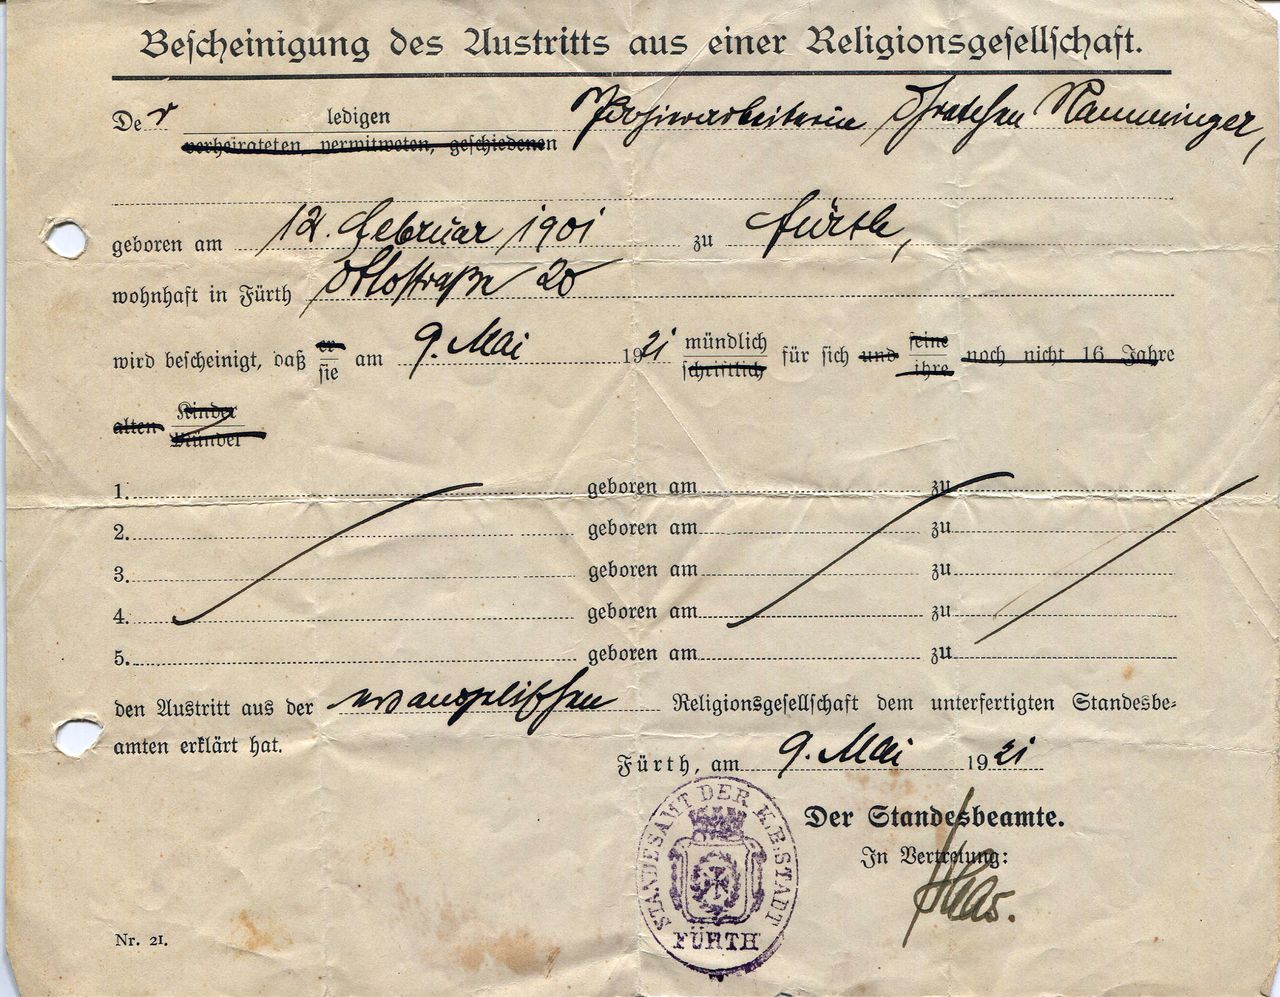 Bescheinigung des Austritts aus einer Religionsgesellschaft.
Der ledigen
verheirateten, verwitweten, geschiedenen
Namminger,
geboren am 12. Februar 1901 zu Fürth,
wohnhaft in Fürth Ottostraße 20
wird bescheinigt, daß er sie am 9. Mai 1921 mündlich schriftlich für sich und seine ihre noch nicht 16 Jahre
alten Kinder Mündel
1. geboren am zu
2. geboren am zu
3. geboren am zu
4. geboren am zu
5. geboren am zu
den Austritt aus der evangelischen Religionsgesellschaft dem unterfertigten Standesbe-
amten erklärt hat.
Fürth, am 9. Mai 1921
Der Standesbeamte.
In Vertretung:
Haas.
STANDESAMT DER K.B. STADT
FÜRTH
Nr. 21.